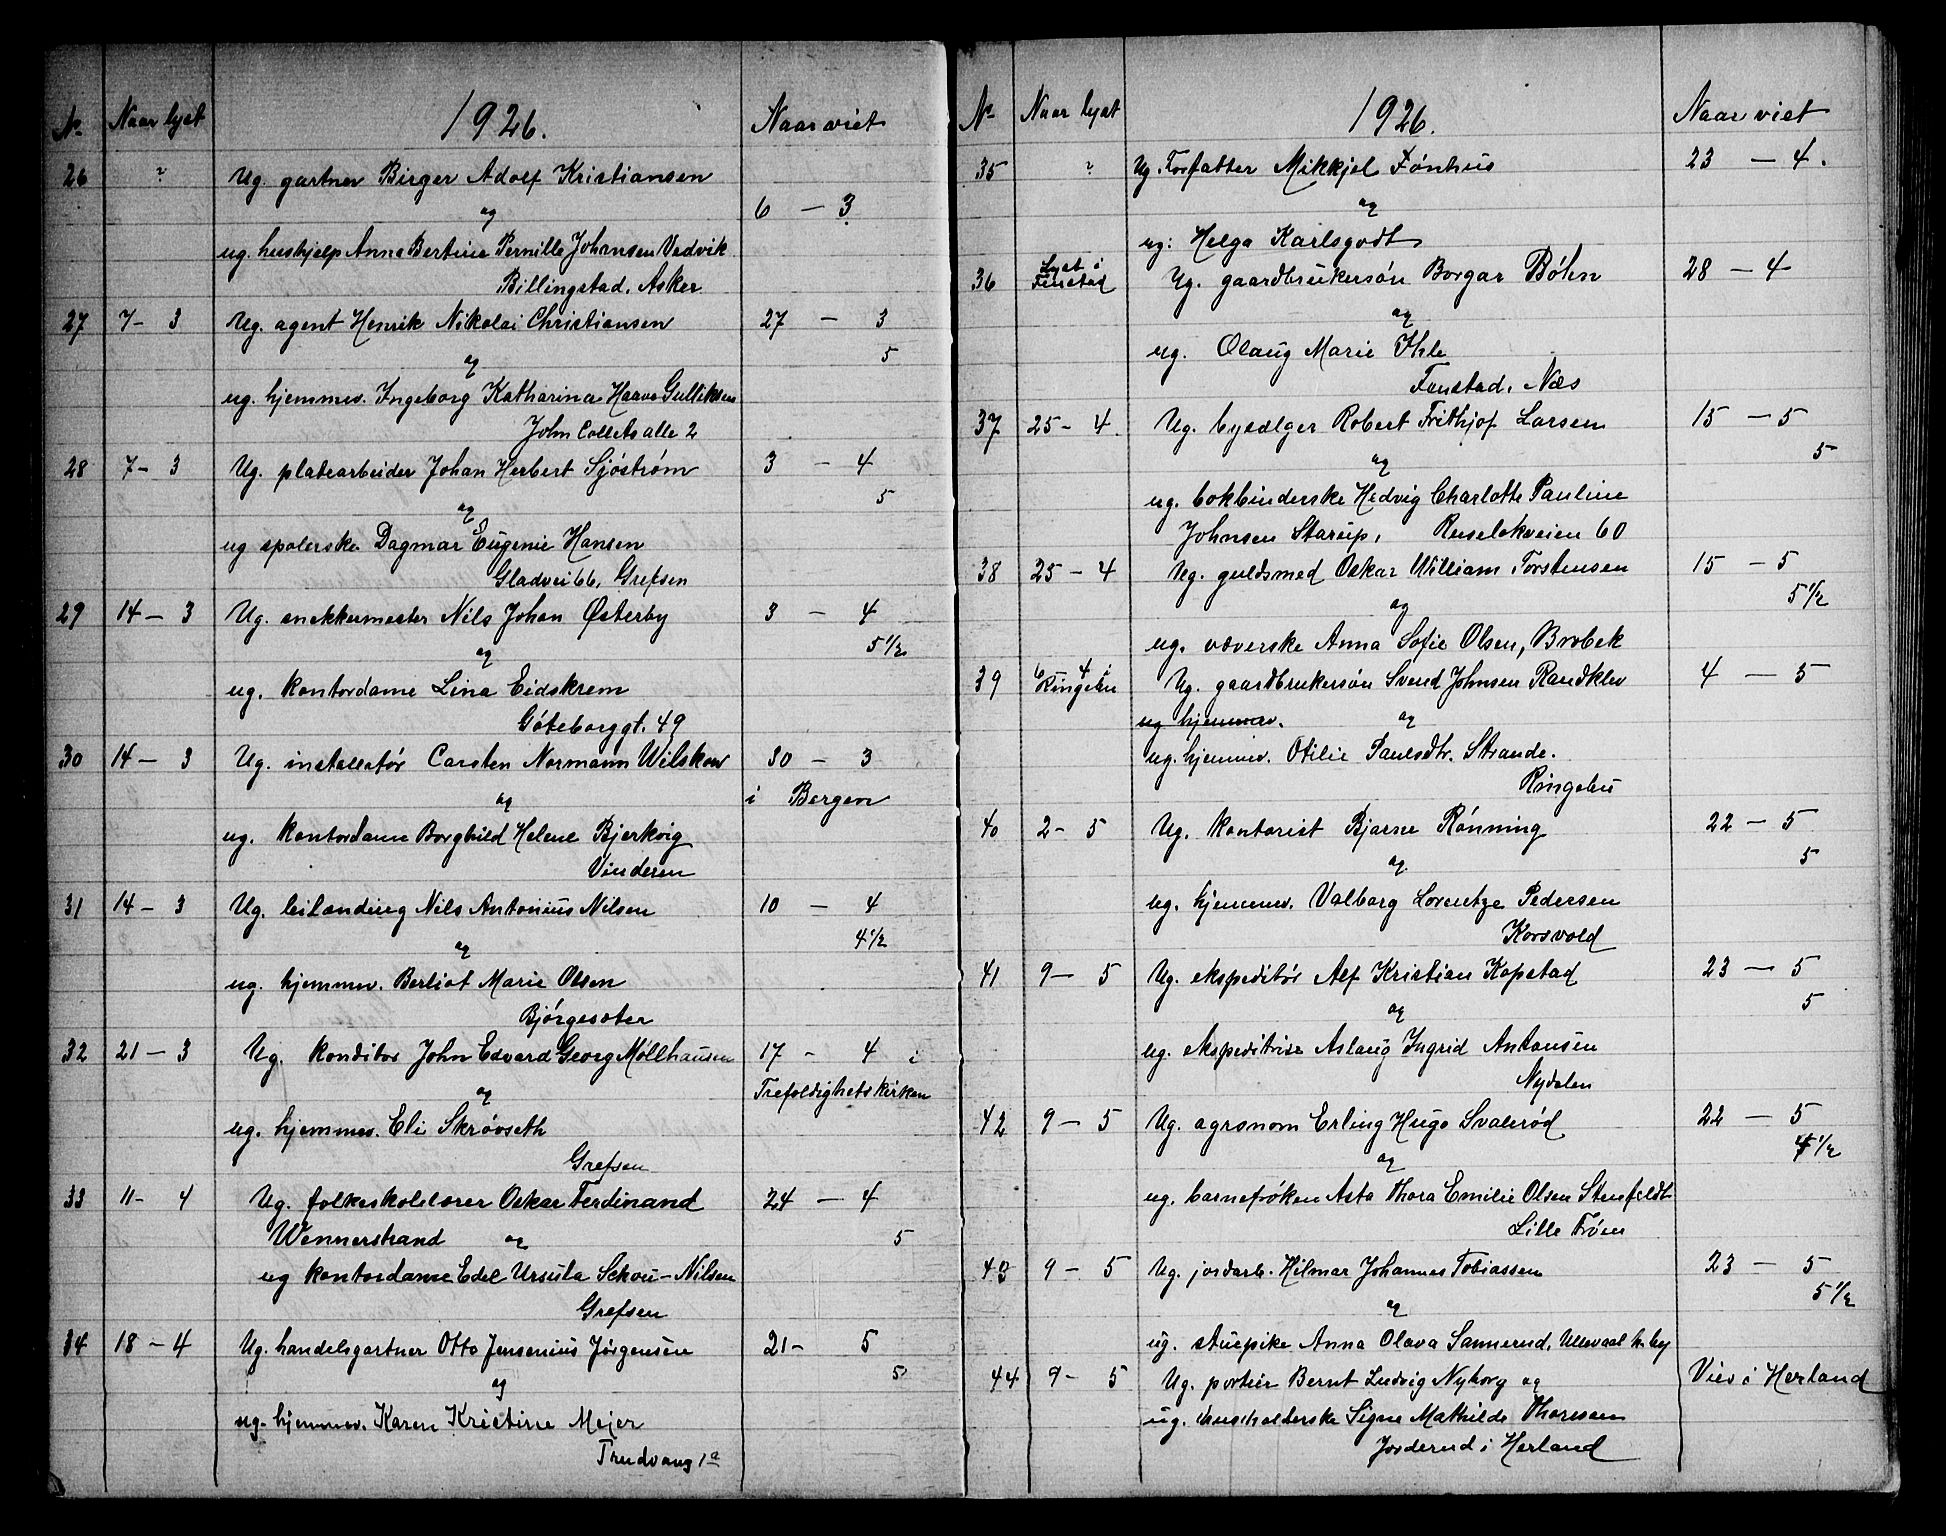 No Naar lyst 1926. Naar viet
26 ? Ug. gartner Birger Adolf Kristiansen
og 6 — 3
ug. hushjelp Anna Bertine Pernille Johansen Vadvik
Billingstad. Asker
27 7 - 3 Ug. agent Henrik Nikolai Christiansen 27 — 3
og 5
ug. hjemmev. Ingeborg Katharina Haave Gulliksen
John Colletsalle 2
28 7 - 3 Ug. platearbeider Johan Herbert Sjöström 3 — 4
og 5
ug spolerske Dagmar Eugenie Hansen
Gladvei 66, Grefsen
29 14 — 3 Ug. snekkermester Nils Johan Østerby 3 — 4
og 5 1/2
ug. kontordame Lina Eidskrem
Göteborggt. 49
30 14 — 3 Ug. installatör Carsten Normann Wilskow 30 — 3
og i Bergen
ug. kontordame Borghild Helene Bjerkvig
Vinderen
31 14 — 3 Ug. leilænding Nils Antonius Nilsen 10 — 4
og 4 1/2
ug. hjemmev. Berliot Marie Olsen
Bjørgesæter
32 21 — 3 Ug. konditor John Edvard Georg Møllhausen 17 - 4 i
og Trefoldighetskirken
ug. hjemmev. Eli Skrøvseth
Grefsen
33 11 - 4 Ug. folkeskolelærer Oskar Ferdinand 24 — 4
Wennerstrand og 5
ug kontordame Edel Ursula Schou-Nilsen
Grefsen
34 18 — 4 Ug. handelsgartner Otto Jensenius Jørgensen 21 - 5
og 5
ug. hjemmev. Karen Kristine Mejer
Trudvang 1a
No Naar lyst 1926. Naar viet
35 ? Ug. Forfatter Mikkjel Fønhus 23 — 4.
og
ug: Helga Karlsgodt
36 Lyst i Fenstad Ug. gaardbrukersön Borgar Böhn 28 — 4
og
ug. Olaug Marie Ihle
Fenstad. Næs
37 25 - 4. Ug. bysælger Robert Frithjof Larsen 15 — 5
og 5
ug. bokbinderske Hedvig Charlotte Pauline
Johnsen Starup, Ruselokveien 60
38 25 — 4 Ug. guldsmed Oskar William Torstensen 15 — 5
og 5 1/2
ug. væverske Anna Sofie Olsen, Brobek
39 6 4 i Ringebu Ug. gaardbrukersön Svend Johnsen Randklev 4 — 5
ug hjemmev. og
ug. hjemmev. Otilie Paulsdtr. Strande.
Ringebu
40 2 - 5 Ug. kontorist Bjarne Rönning 22 — 5
og 5
ug. hjemmev. Valborg Lorentze Pedersen
Korsvold
41 9 — 5 Ug. ekspeditör Alf Kristian Kopstad 23 — 5
og 5
ug. ekspeditrise Aslaug Ingrid Antonsen
Nydalen
42 9 — 5 Ug. agronom Erling Hugo Svalerød 22 — 5
og 4 1/2
ug. barnefröken Asta Thora Emilie Olsen Stenfeldt
Lille Frøen
43 9 — 5 Ug. jordarb. Hilmar Johannes Tobiassen 23 — 5
og 5 1/2
ug. stuepike Anna Olava Sannerud, Ullevaal h. by
44 9 - 5 Ug. portier Bernt Ludvig Nyborg og Viev i Herland
ug. husholderske Signe Mathilde Thoresen
Jorderud i Herland